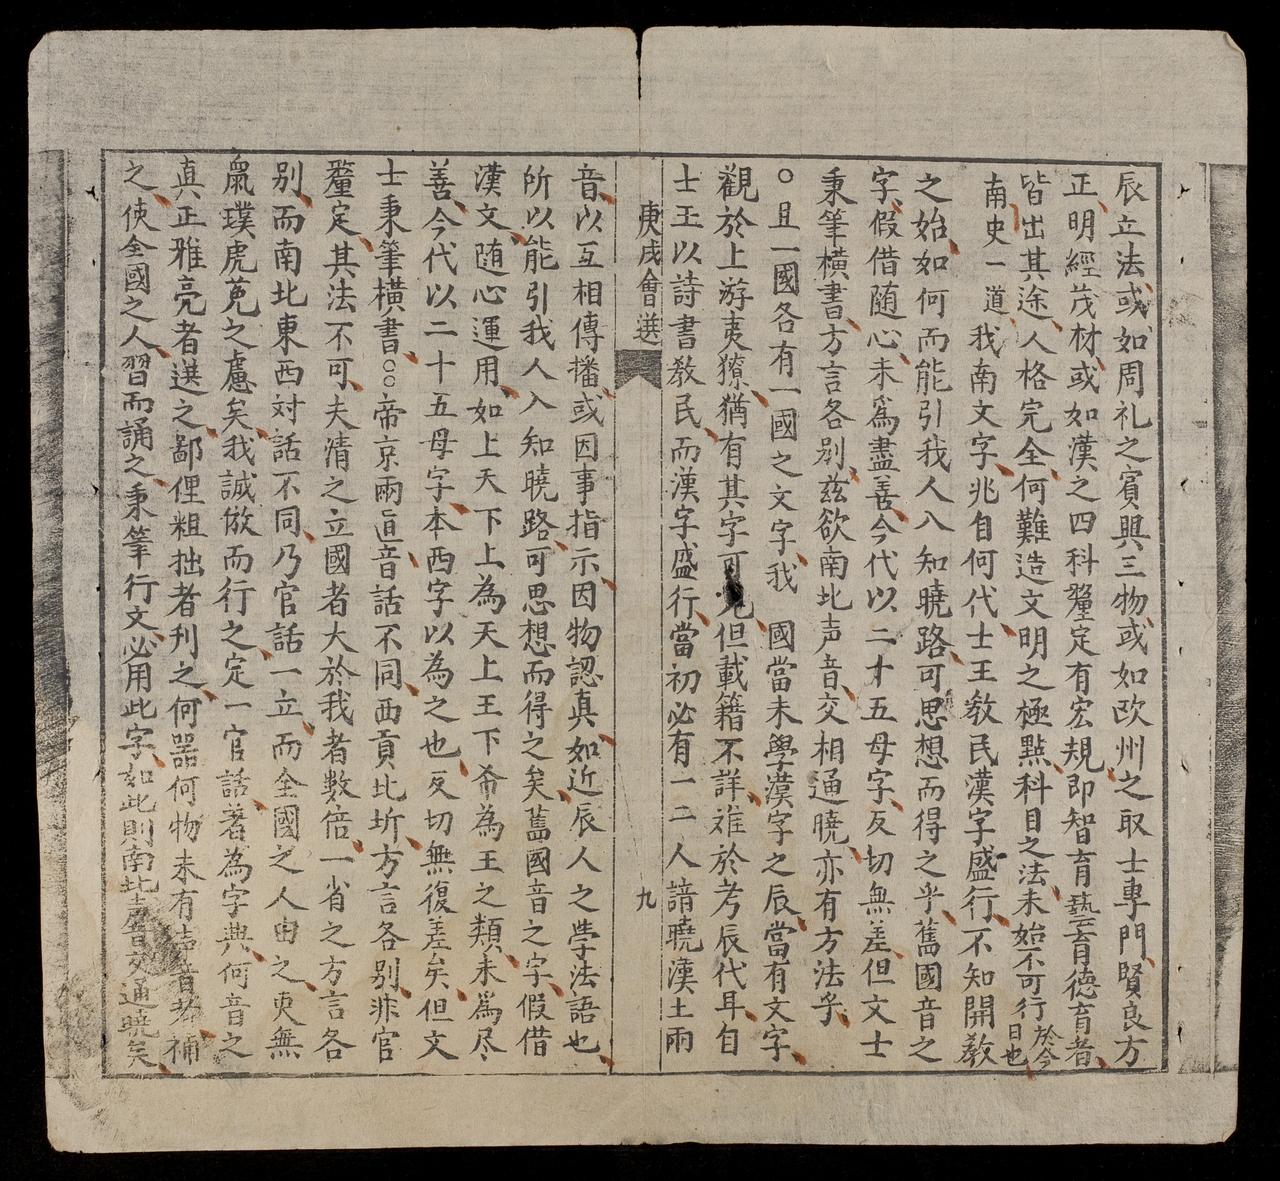 辰立法或如周礼之賓興三物或如欧州之取士專門賢良方
正明經茂材或如漢之四科釐定有宏規即智育藝育德育者
皆出其途人格完全何難造文明之極點科目之法未始不可行於今日也
南史一道我南文字兆自何代士王教民漢字盛行不知開教
之始如何而能引我人入知曉路可思想而得之乎舊國音之
字假借随心未爲盡善今代以二十五母字反切無差但文士
秉筆橫書方言各別兹欲南北声音交相通曉亦有方法乎
○且一國各有一國之文字我 國當未學漢字之辰當有文字
觀於上游夷獠猶有其字可見但載籍不詳难於考辰代耳自
士王以詩書教民而漢字盛行當初必有一二人諳曉漢土兩
庚戌會選
九
音以互相傳播或因事指示因物認真如近辰人之学法語也
所以能引我人入知曉路可思想而得之矣舊國音之字假借
漢文随心運用如上天下上為天上王下布為王之類未爲尽
善今代以二十五母字本西字以為之也反切無復差矣但文
士秉筆橫書○○帝京兩直音話不同西貢北圻方言各別非官
釐定其法不可夫清之立國者大於我者數倍一省之方言各
别而南北東西対話不同乃官話一立而全國之人由之更無
鼠璞虎菟之慮矣我誠倣而行之定一官話著為字典何音之
真正雅亮者選之鄙俚粗拙者刋之何器何物未有声音者補
之使全國之人習而誦之秉筆行文必用此字如此則南北声音交通曉矣